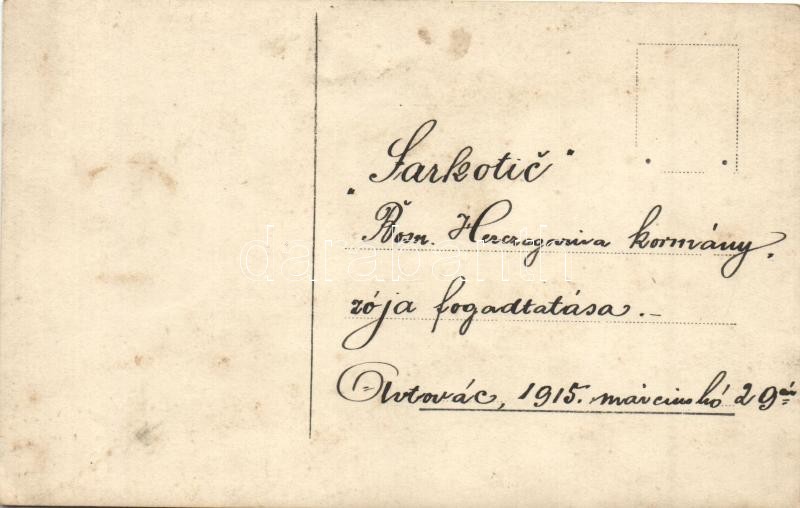 "Sarkotič"
Bosn. Herczegovina kormány,
zója fogadtatása.-
Avtovác, 1915. márciushó 29én
darabanth